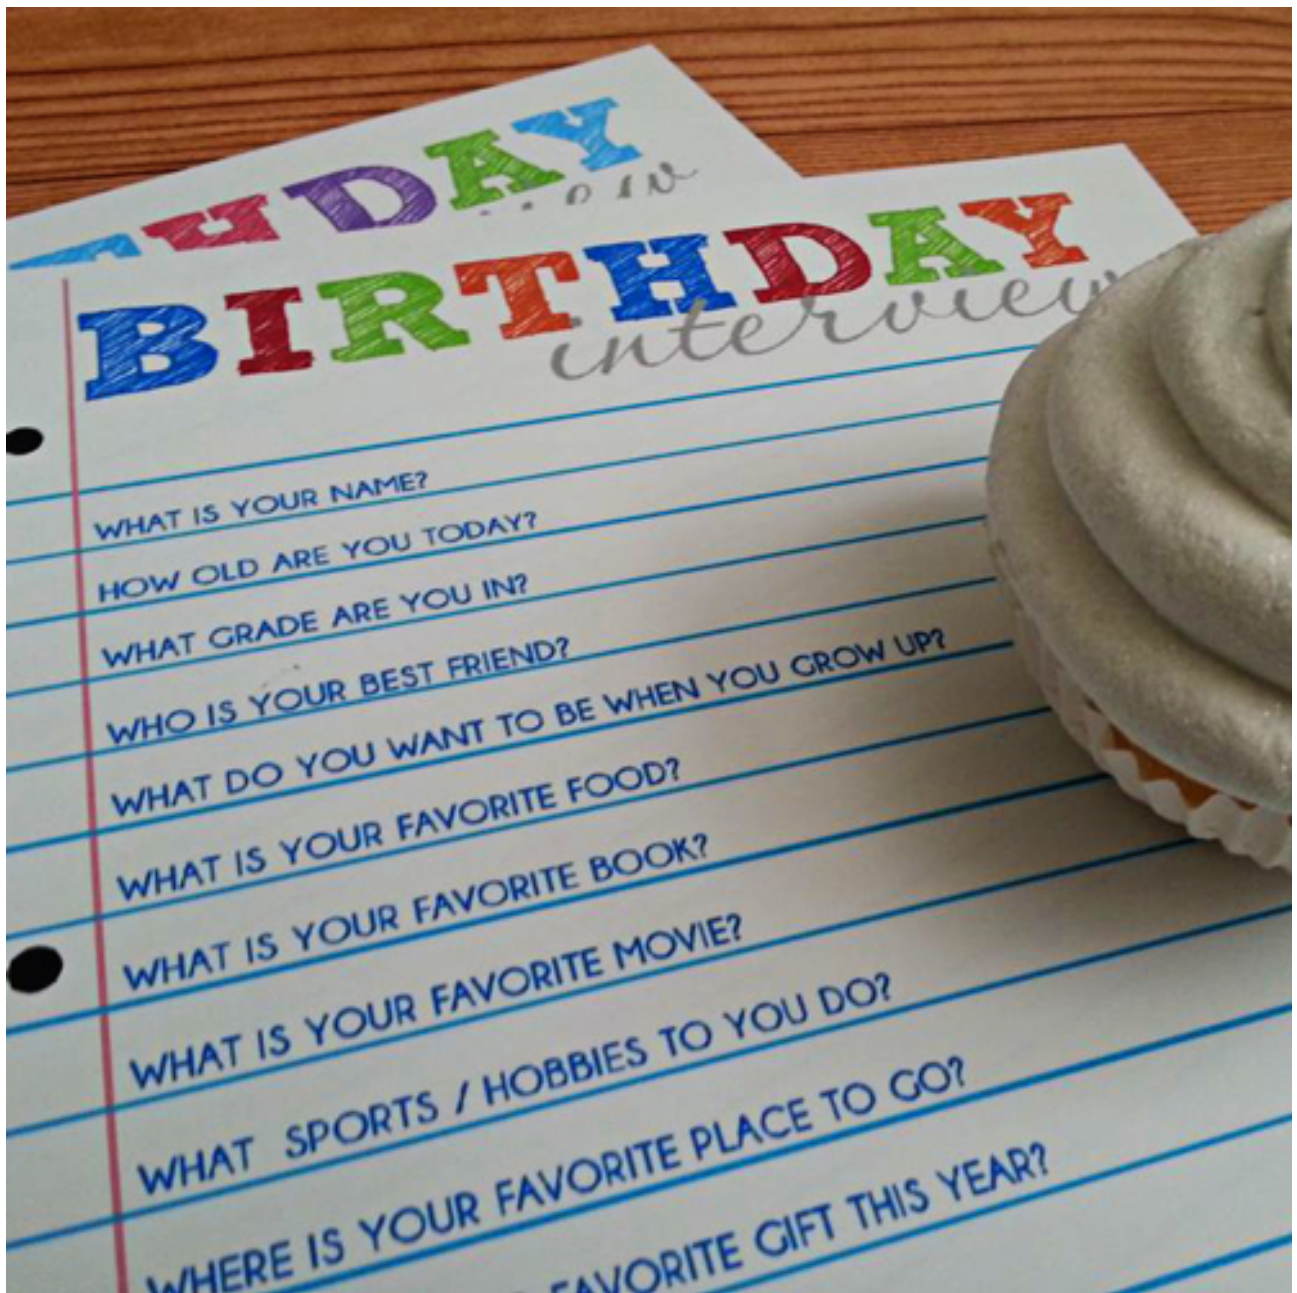 HDAY
BIRTHDAY
interview
WHAT IS YOUR NAME?
HOW OLD ARE YOU TODAY?
WHAT GRADE ARE YOU IN?
WHO IS YOUR BEST FRIEND?
WHAT DO YOU WANT TO BE WHEN YOU GROW UP?
WHAT IS YOUR FAVORITE FOOD?
WHAT IS YOUR FAVORITE BOOK?
WHAT IS YOUR FAVORITE MOVIE?
WHAT SPORTS / HOBBIES TO YOU DO?
WHERE IS YOUR FAVORITE PLACE TO GO?
FAVORITE GIFT THIS YEAR?